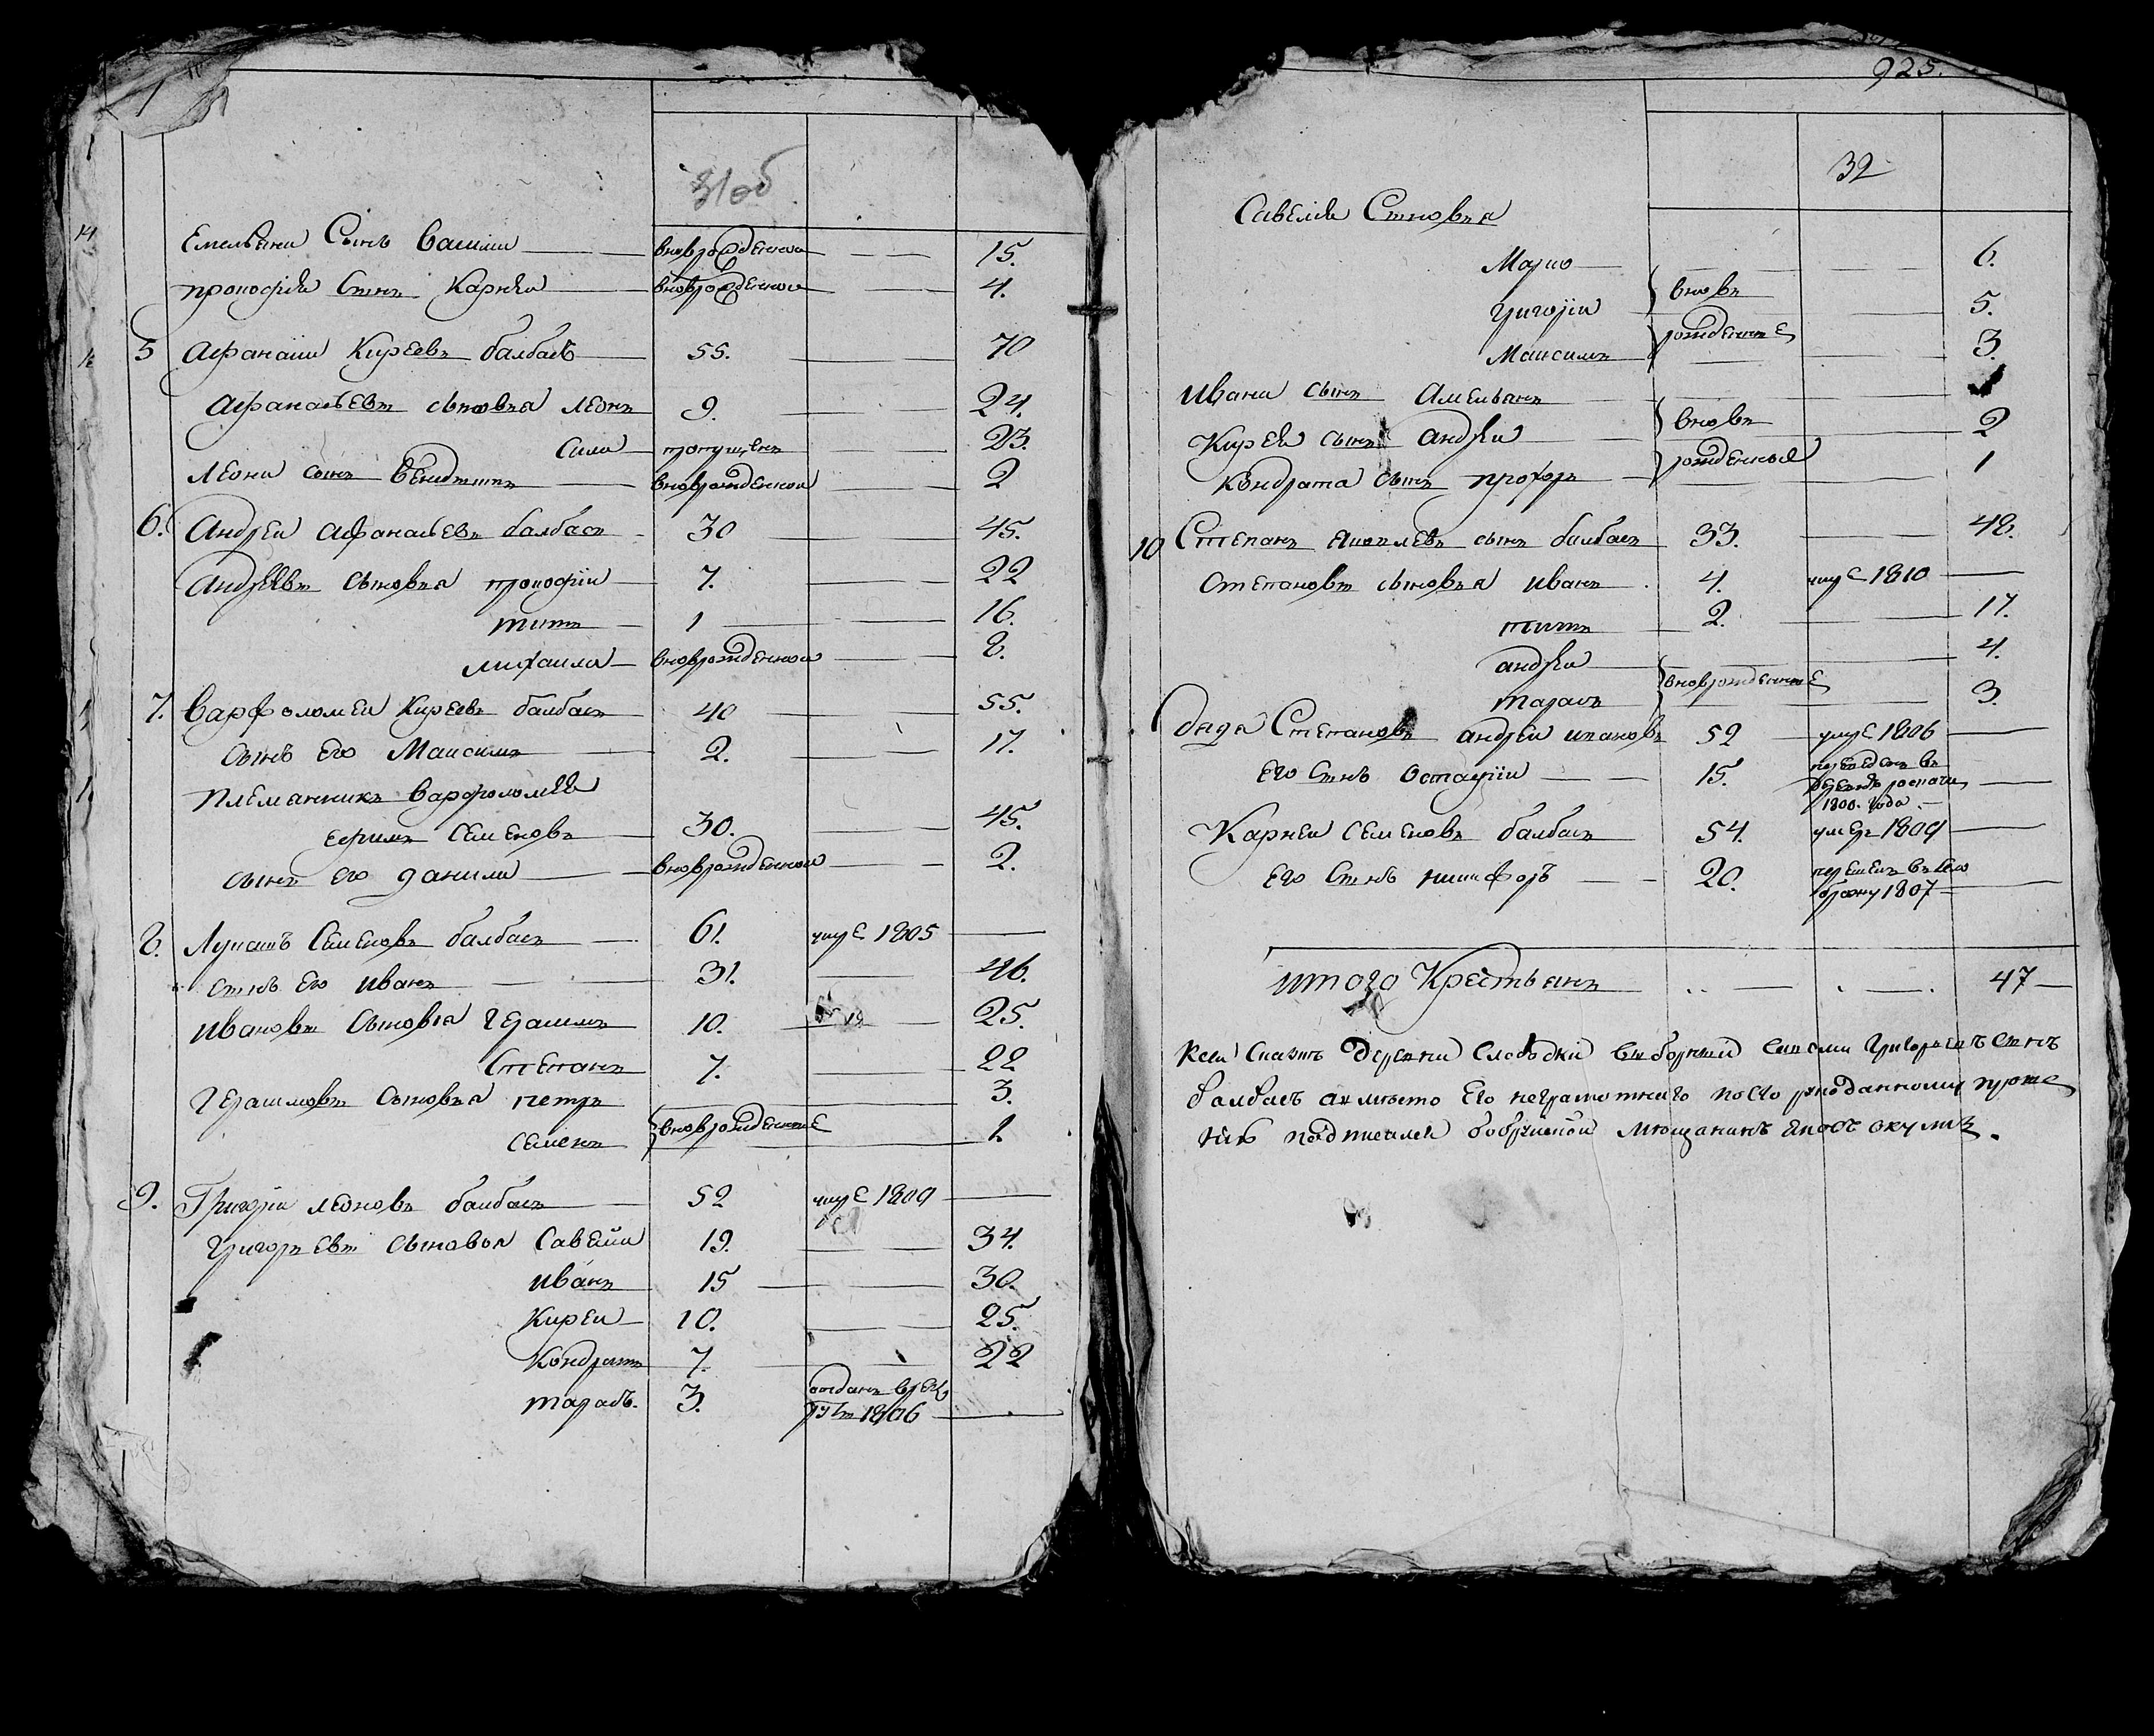 31об
Емельяна Сынъ Василии вноврожденной 15.
прокофия Сынъ Карней вноврожденной 4.
5 Афанасии Киреевъ балбасъ 55. 70
Афанасьевы сыновья леонъ 9. 24.
Сила пропущенъ 23.
Леона сынъ вноврожденной 2
6. Андреи Афанасьевъ балбасъ 30 45.
Андреевы сыновья прокофии 7. 22
титъ 1 16.
михаила вноврожденной 8.
7. Варфоломеи Киреевъ балбасъ 40 55.
сынъ его Максимъ 2. 17.
Племянникъ варфоломея
ефимъ семеновъ 30. 45.
сынъ его данила вноврожденной 2.
8. Лукашъ Семеновъ балбасъ 61. умре 1805
сынъ его иванъ 31. 46.
ивановы сыновья герасимъ 10. 25.
Степанъ 7. 22
герасимовы сыновья петръ 3.
семенъ вноврожденные 1
9. Григори леоновъ балбасъ 52 умре 1809
григорьевы сыновья Савелий 19. 34.
иванъ 15 30.
Кирей 10. 25.
Кондратъ 7. 22
тарасъ. 3. отданъ в рек
руты 1806
925.
32
Савелия Сыновья
Марко 6.
григории вновь 5.
Максимъ рожденные 3.
ивана сынъ Амельянъ
Кирея сынъ андреи вновь 2
Кондрата сынъ прохоръ рожденные 1
10 Степанъ яковлевъ сынъ балбасъ 33. 48.
степановы сыновья иванъ 4. умре 1810
титъ 2. 17.
андрей 4.
тарасъ вноврожденные 3.
дядя Степановъ андреи 52 умре 1806
его сынъ Остафии 15.
1800. года
Карнеи семеновъ балбасъ 54. умеръ 1809
его сынъ никифоръ 20.
1807
итого Крестьянъ 47
деревни Слободки выборный григорьевъ сынъ
балбасъ а вместо его неграмотнаго по его рукоданному проше
нию подписалъ бобруйской мещанинъ